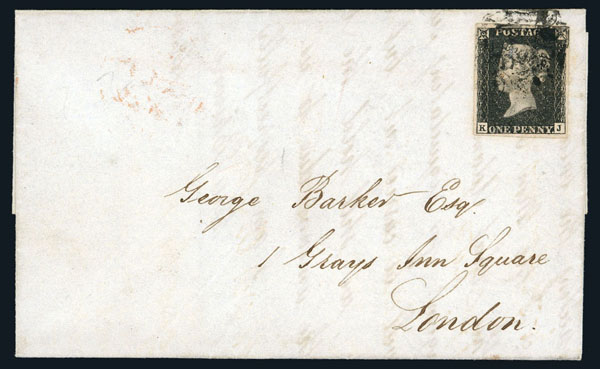 POSTAGE
K ONE PENNY J
George Barker Esq.
1 Grays Inn Square
London.